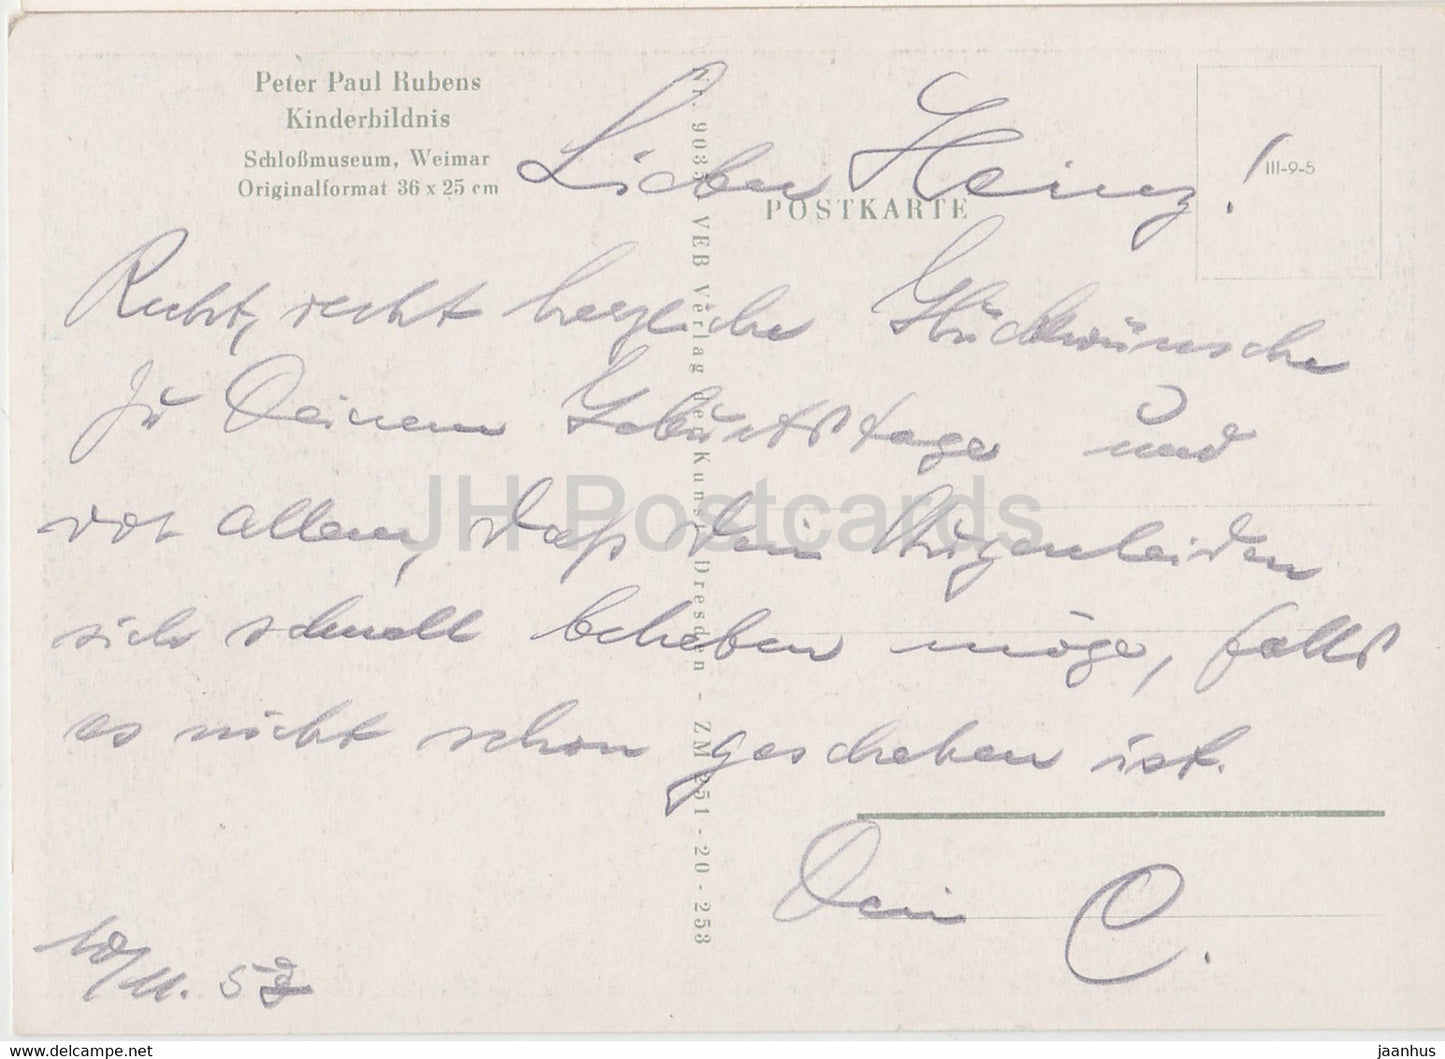 Peter Paul Rubens
Kinderbildnis
Schloßmuseum, Weimar
Originalformat 36 x 25 cm
POSTKARTE
III-9-5
Lieber Heinz!
Recht, recht herzliche Glückwünsche
zu Deinem Geburtstage und
vor allem, daß dein Augenleiden
sich schnell beheben möge, falls
es nicht schon geschehen ist.
Dein C.
10/11. 53
VEB Verlag der Kunst Dresden - ZM 251 - 20 - 253
JH Postcards
www.delcampe.net
jaanhus